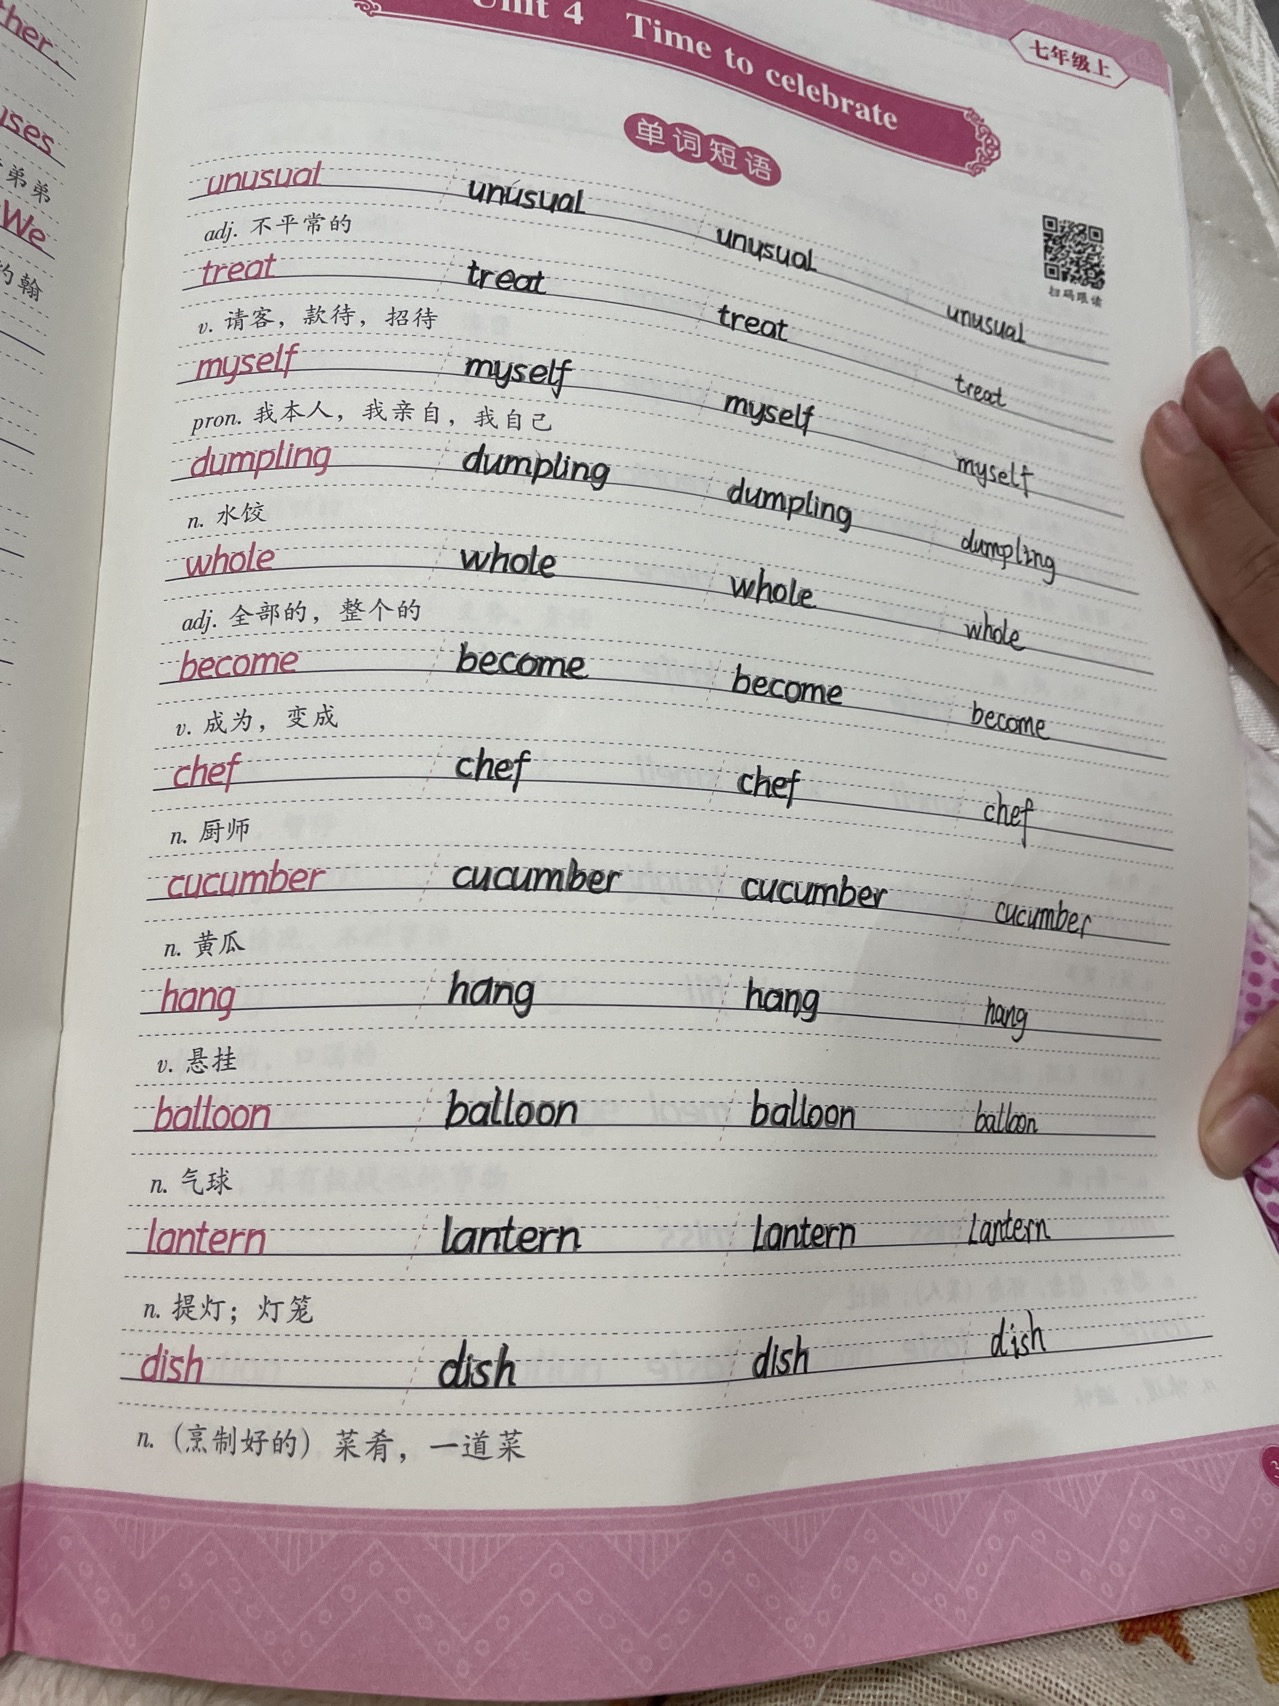 ther.
uses
弟弟
We
约翰
Unit 4 Time to celebrate
七年级上
单词短语
扫码跟读
unusual unusual unusual unusual
adj. 不平常的
treat treat treat treat
v. 请客，款待，招待
myself myself myself myself
pron. 我本人，我亲自，我自己
dumpling dumpling dumpling dumpling
n. 水饺
whole whole whole whole
adj. 全部的，整个的
become become become become
v. 成为，变成
chef chef chef chef
n. 厨师
cucumber cucumber cucumber cucumber
n. 黄瓜
hang hang hang hang
v. 悬挂
balloon balloon balloon balloon
n. 气球
lantern lantern lantern lantern
n. 提灯；灯笼
dish dish dish dish
n.（烹制好的）菜肴，一道菜